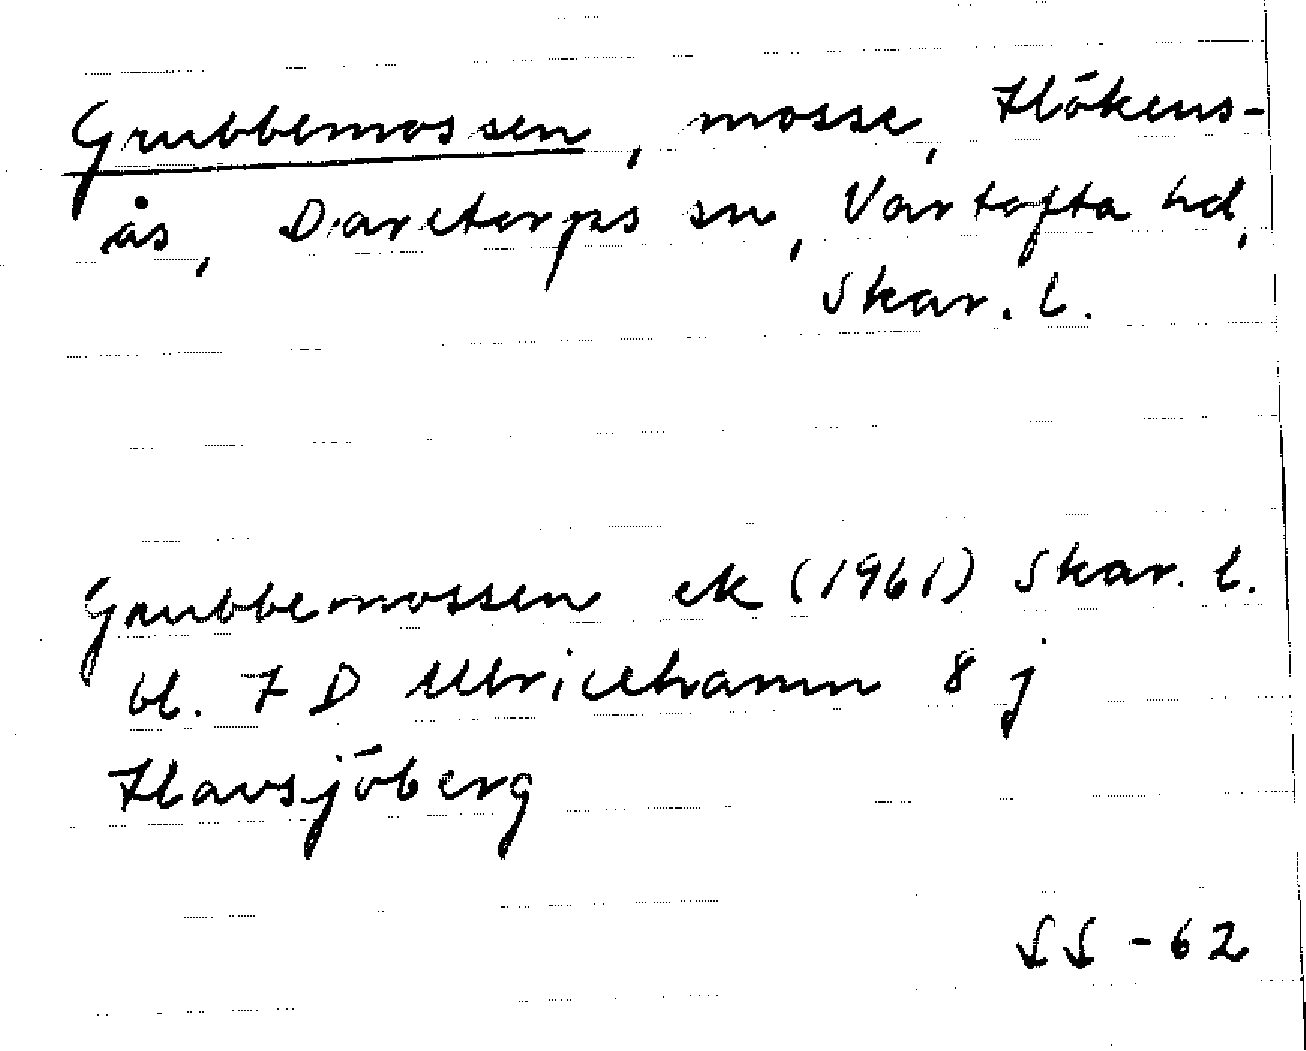 Grubbemossen, mosse, Hökens-
ås, Daretorps sn, Vartofta hd,
Skar. l.
Grubbemossen ek (1961) Skar. l.
bl. 7 D Ulricehamn 8 j
Havsjöberg
SS -62